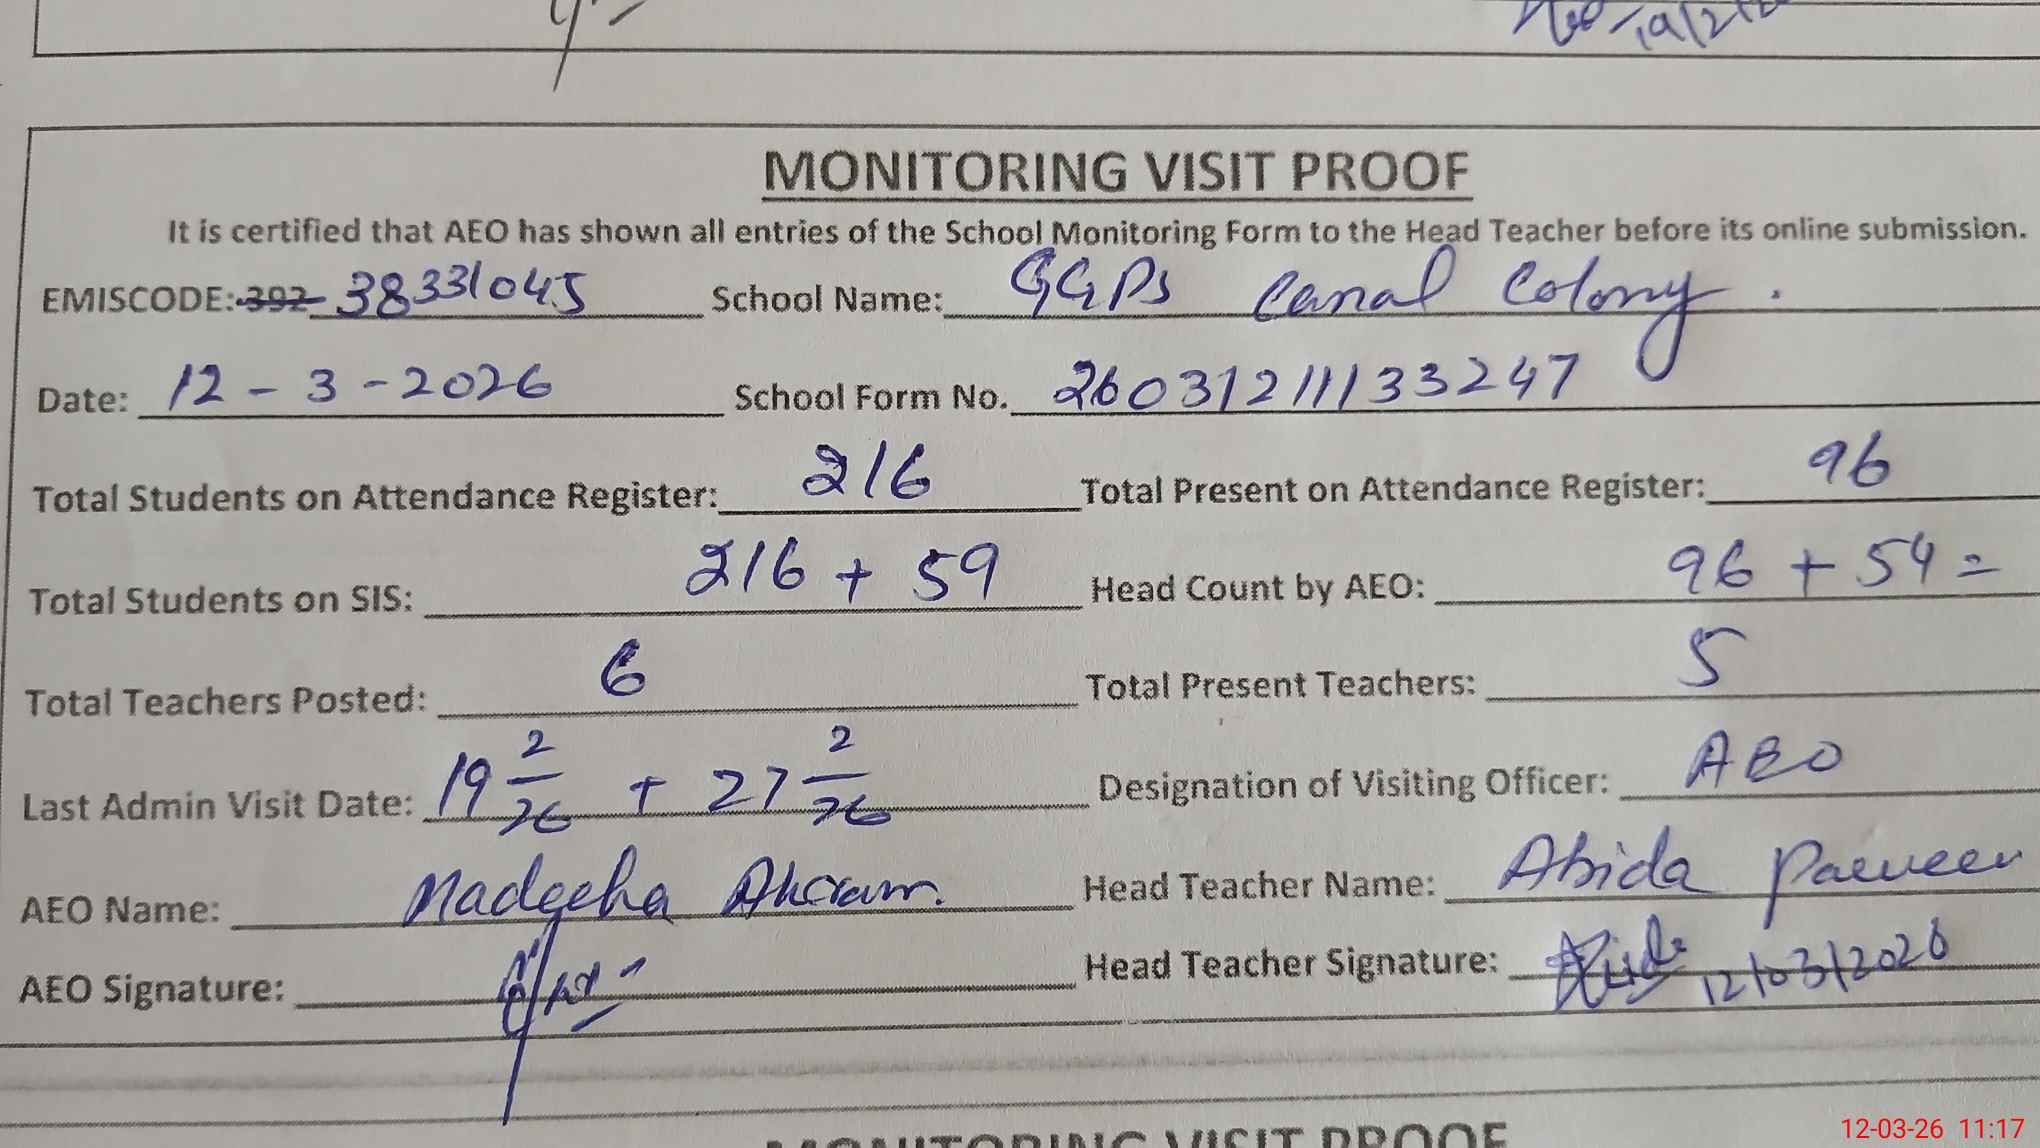 19/2/2
MONITORING VISIT PROOF
It is certified that AEO has shown all entries of the School Monitoring Form to the Head Teacher before its online submission.
EMISCODE: 392 38331045 School Name: GGPS Canal Colony.
Date: 12-3-2026 School Form No. 26031211133247
Total Students on Attendance Register: 216 Total Present on Attendance Register: 96
Total Students on SIS: 216 + 59 Head Count by AEO: 96 + 54 =
Total Teachers Posted: 6 Total Present Teachers: 5
Last Admin Visit Date: 19 2/26 + 27 2/26 Designation of Visiting Officer: AEO
AEO Name: Madeeha Akram. Head Teacher Name: Abida Parveen
AEO Signature: Head Teacher Signature: 12/03/2026
MONITORING VISIT PROOF
12-03-26 11:17